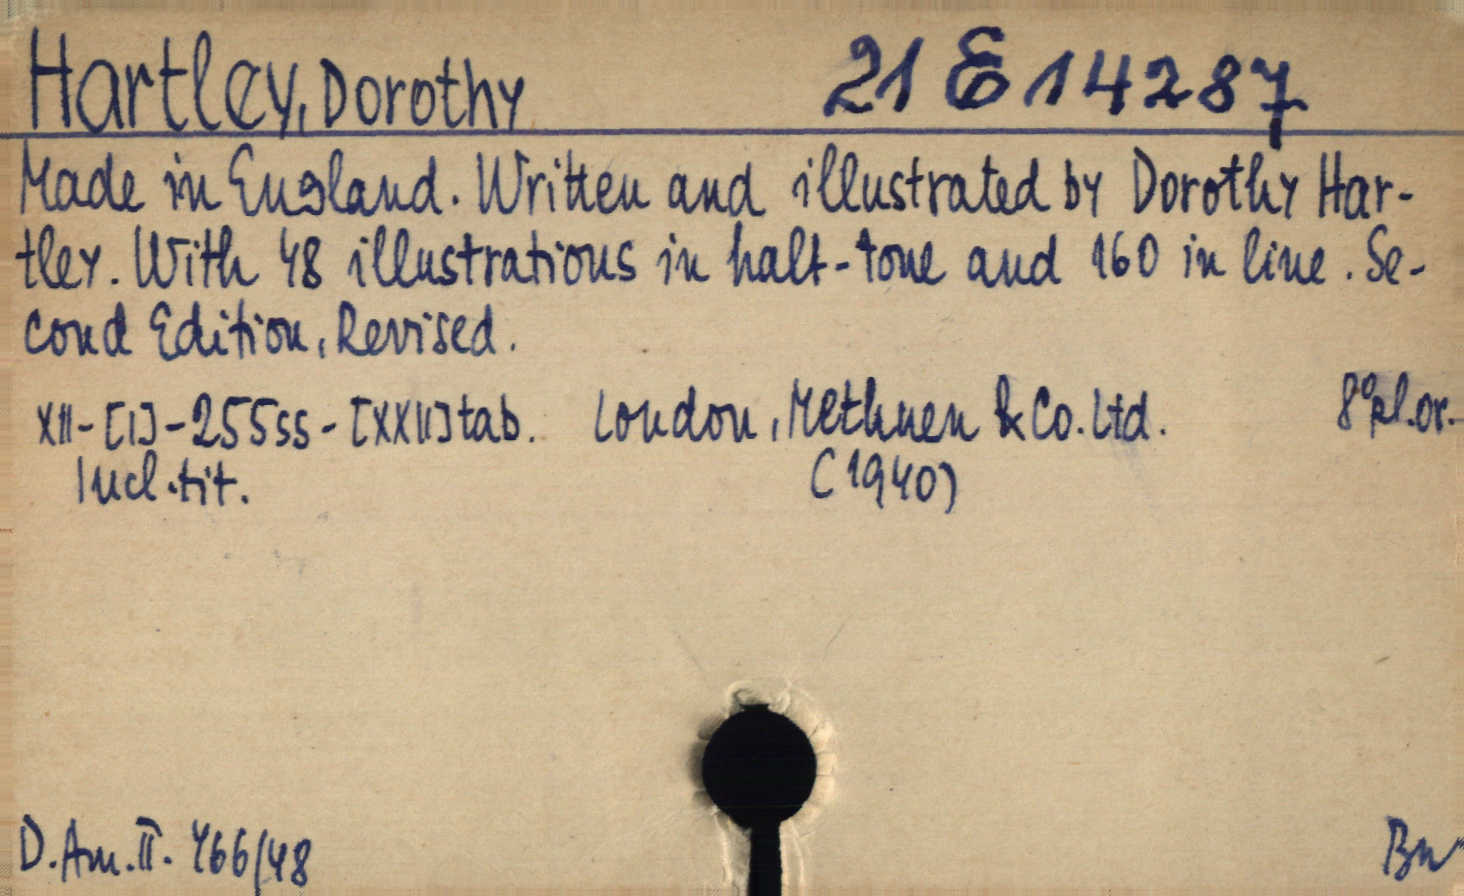 Hartley, Dorothy 21 E 14287
Made in England. Written and illustrated by Dorothy Har-
tley. With 48 illustrations in half-tone and 160 in line. Se-
cond Edition, Revised.
XII-[I]-255ss-[XXII]tab. London, Methuen & Co. Ltd. 8° pl.or.
Incl.tit. (1940)
D.Am.II. 466/48 Bn